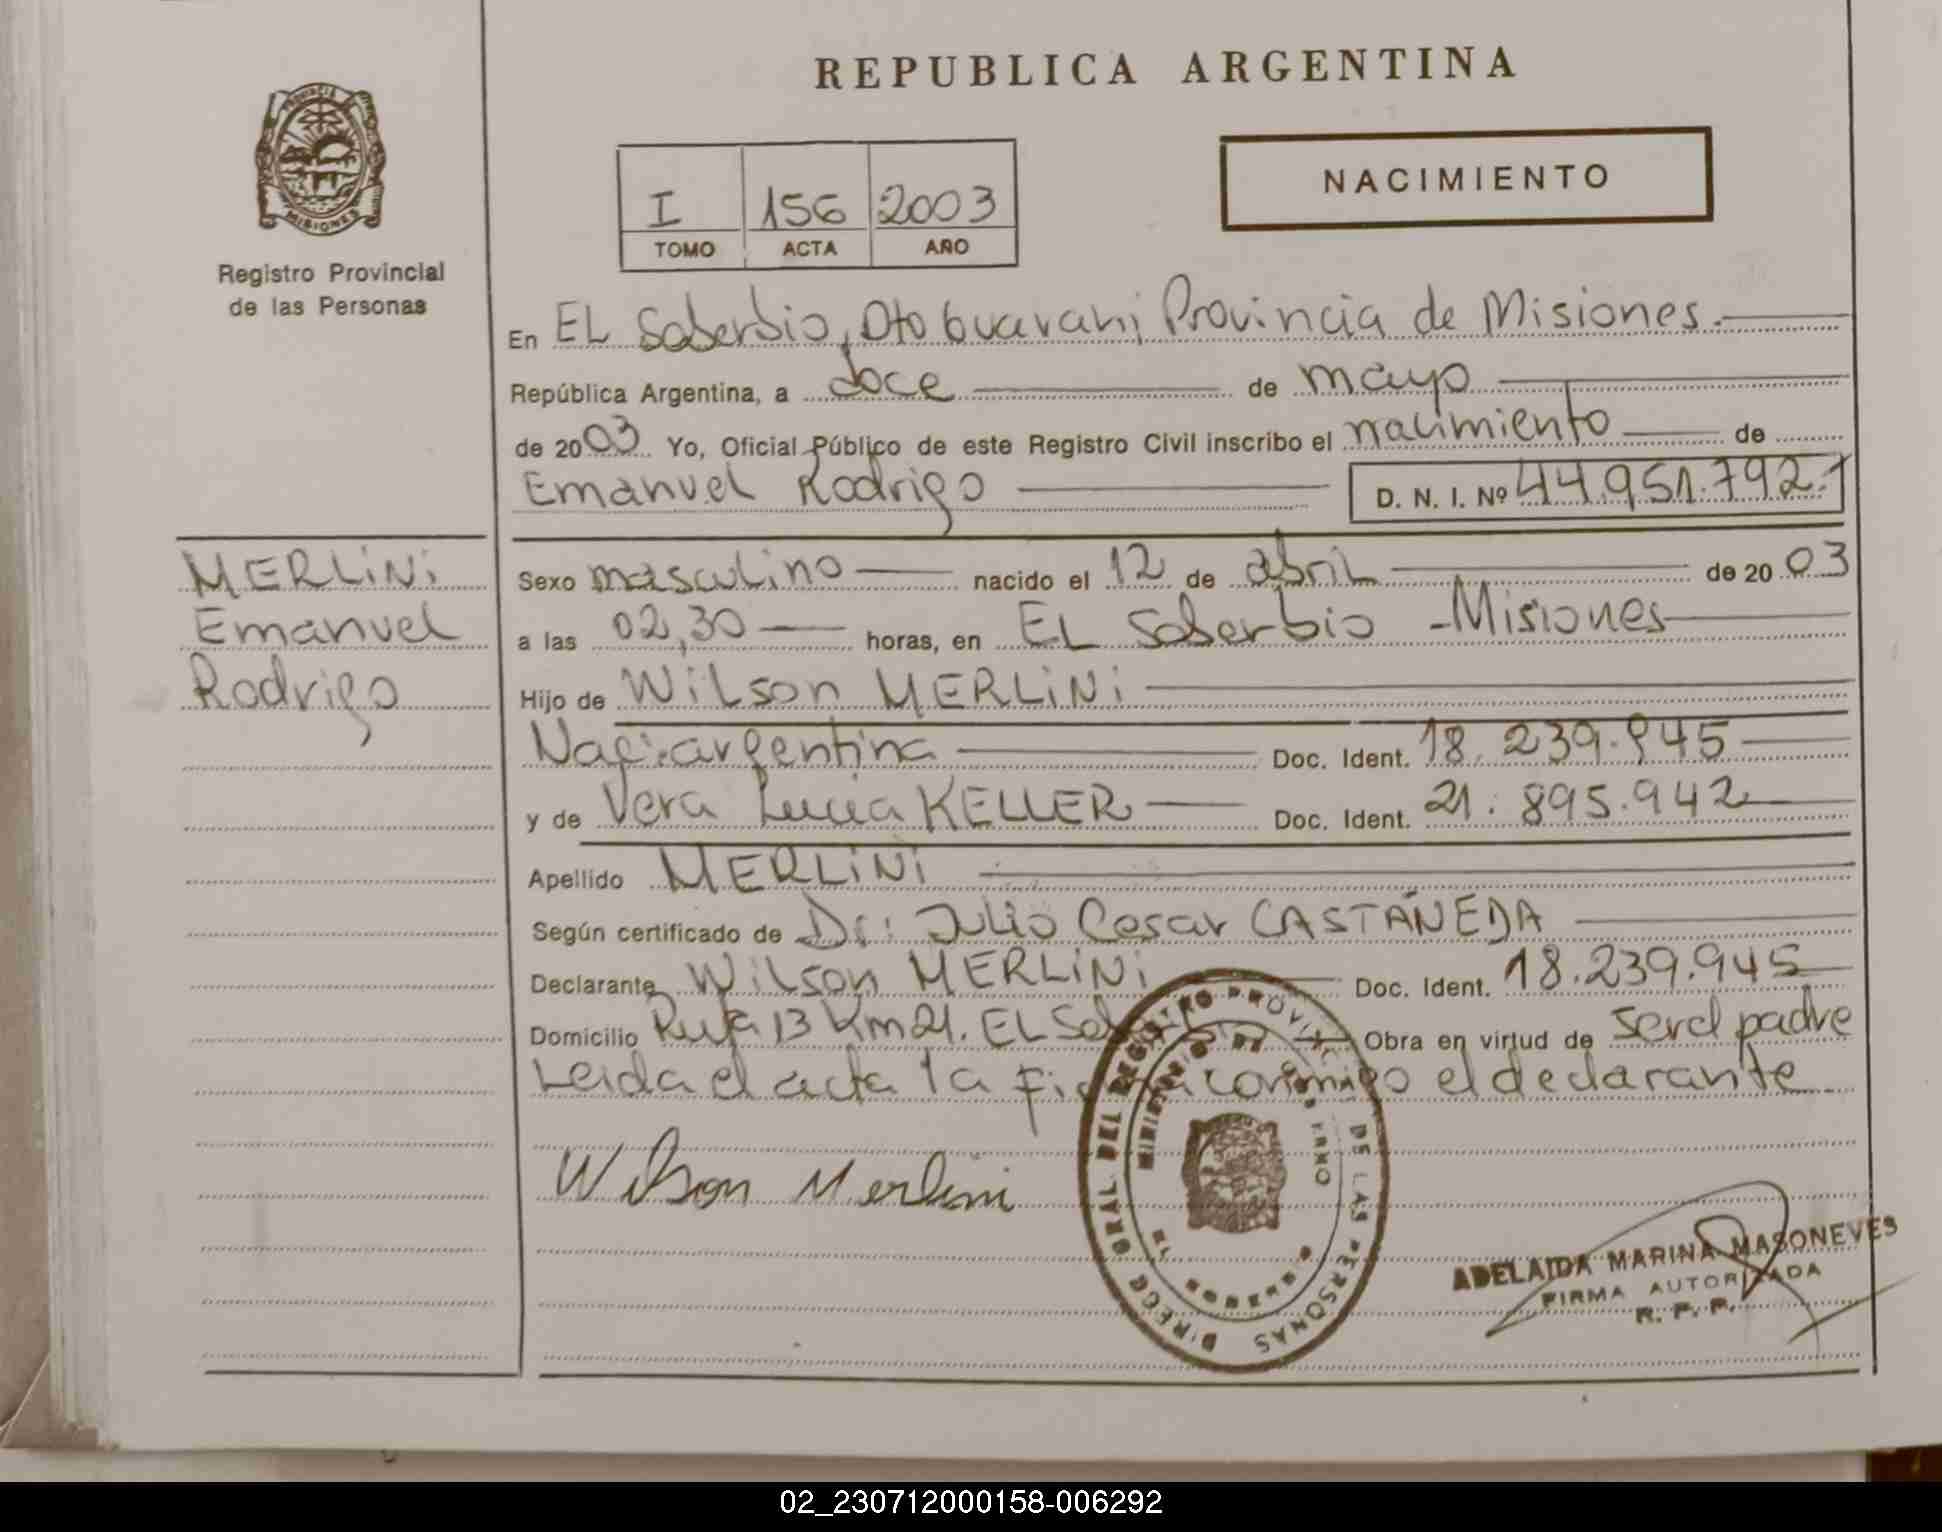 REPUBLICA ARGENTINA
PROVINCIA DE
MISIONES
Registro Provincial
de las Personas
I 156 2003
TOMO ACTA AÑO
NACIMIENTO
En EL Soberbio, Dto Guarani, Provincia de Misiones.
República Argentina, a doce de mayo
de 2003 Yo, Oficial Público de este Registro Civil inscribo el nacimiento de
Emanuel Rodrigo D. N. I. Nº 44.951.792.
MERLiNi
Emanuel
Rodrigo
Sexo masculino nacido el 12 de abril de 20 03
a las 02,30 horas, en EL Soberbio - Misiones
Hijo de Wilson MERLiNi
Nac: argentina Doc. Ident. 18.239.945
y de Vera Lucia KELLER Doc. Ident. 21.895.942
Apellido MERLiNi
Según certificado de Dr: Julio Cesar CASTAÑEDA
Declarante Wilson MERLiNi Doc. Ident. 18.239.945
Domicilio Ruta 13 Km 21. EL Soberbio Obra en virtud de ser el padre
Leida el acta la firma conmigo el declarante
Wilson Merlini
DIRECC GRAL DEL REGISTRO PROVINC DE LAS PERSONAS
MINISTERIO DE GOBIERNO
EL SOBERBIO
ADELAIDA MARINA MASONEVES
FIRMA AUTORIZADA
R. P. P.
02_230712000158-006292